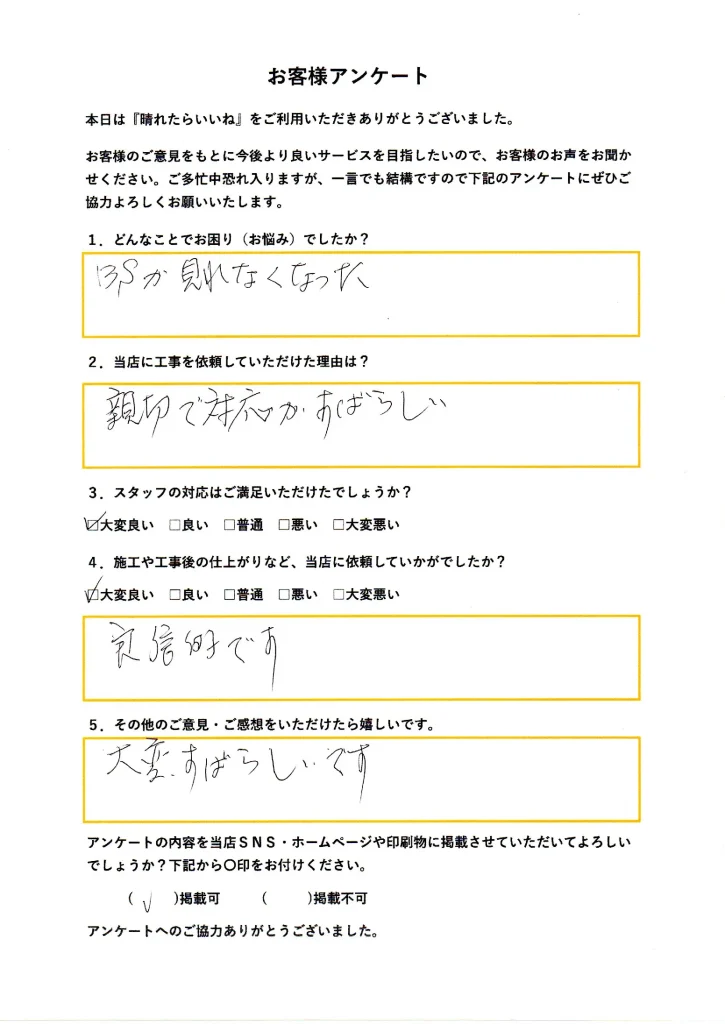 お客様アンケート
本日は『晴れたらいいね』をご利用いただきありがとうございました。
お客様のご意見をもとに今後より良いサービスを目指したいので、お客様のお声をお聞か
せください。ご多忙中恐れ入りますが、一言でも結構ですので下記のアンケートにぜひご
協力よろしくお願いいたします。
1．どんなことでお困り（お悩み）でしたか？
BSが見れなくなった
2．当店に工事を依頼していただけた理由は？
親切で対応がすばらしい
3．スタッフの対応はご満足いただけたでしょうか？
☑大変良い □良い □普通 □悪い □大変悪い
4．施工や工事後の仕上がりなど、当店に依頼していかがでしたか？
☑大変良い □良い □普通 □悪い □大変悪い
良信的です
5．その他のご意見・ご感想をいただけたら嬉しいです。
大変すばらしいです
アンケートの内容を当店SNS・ホームページや印刷物に掲載させていただいてよろしい
でしょうか？下記から〇印をお付けください。
( ✓ )掲載可 ( )掲載不可
アンケートへのご協力ありがとうございました。